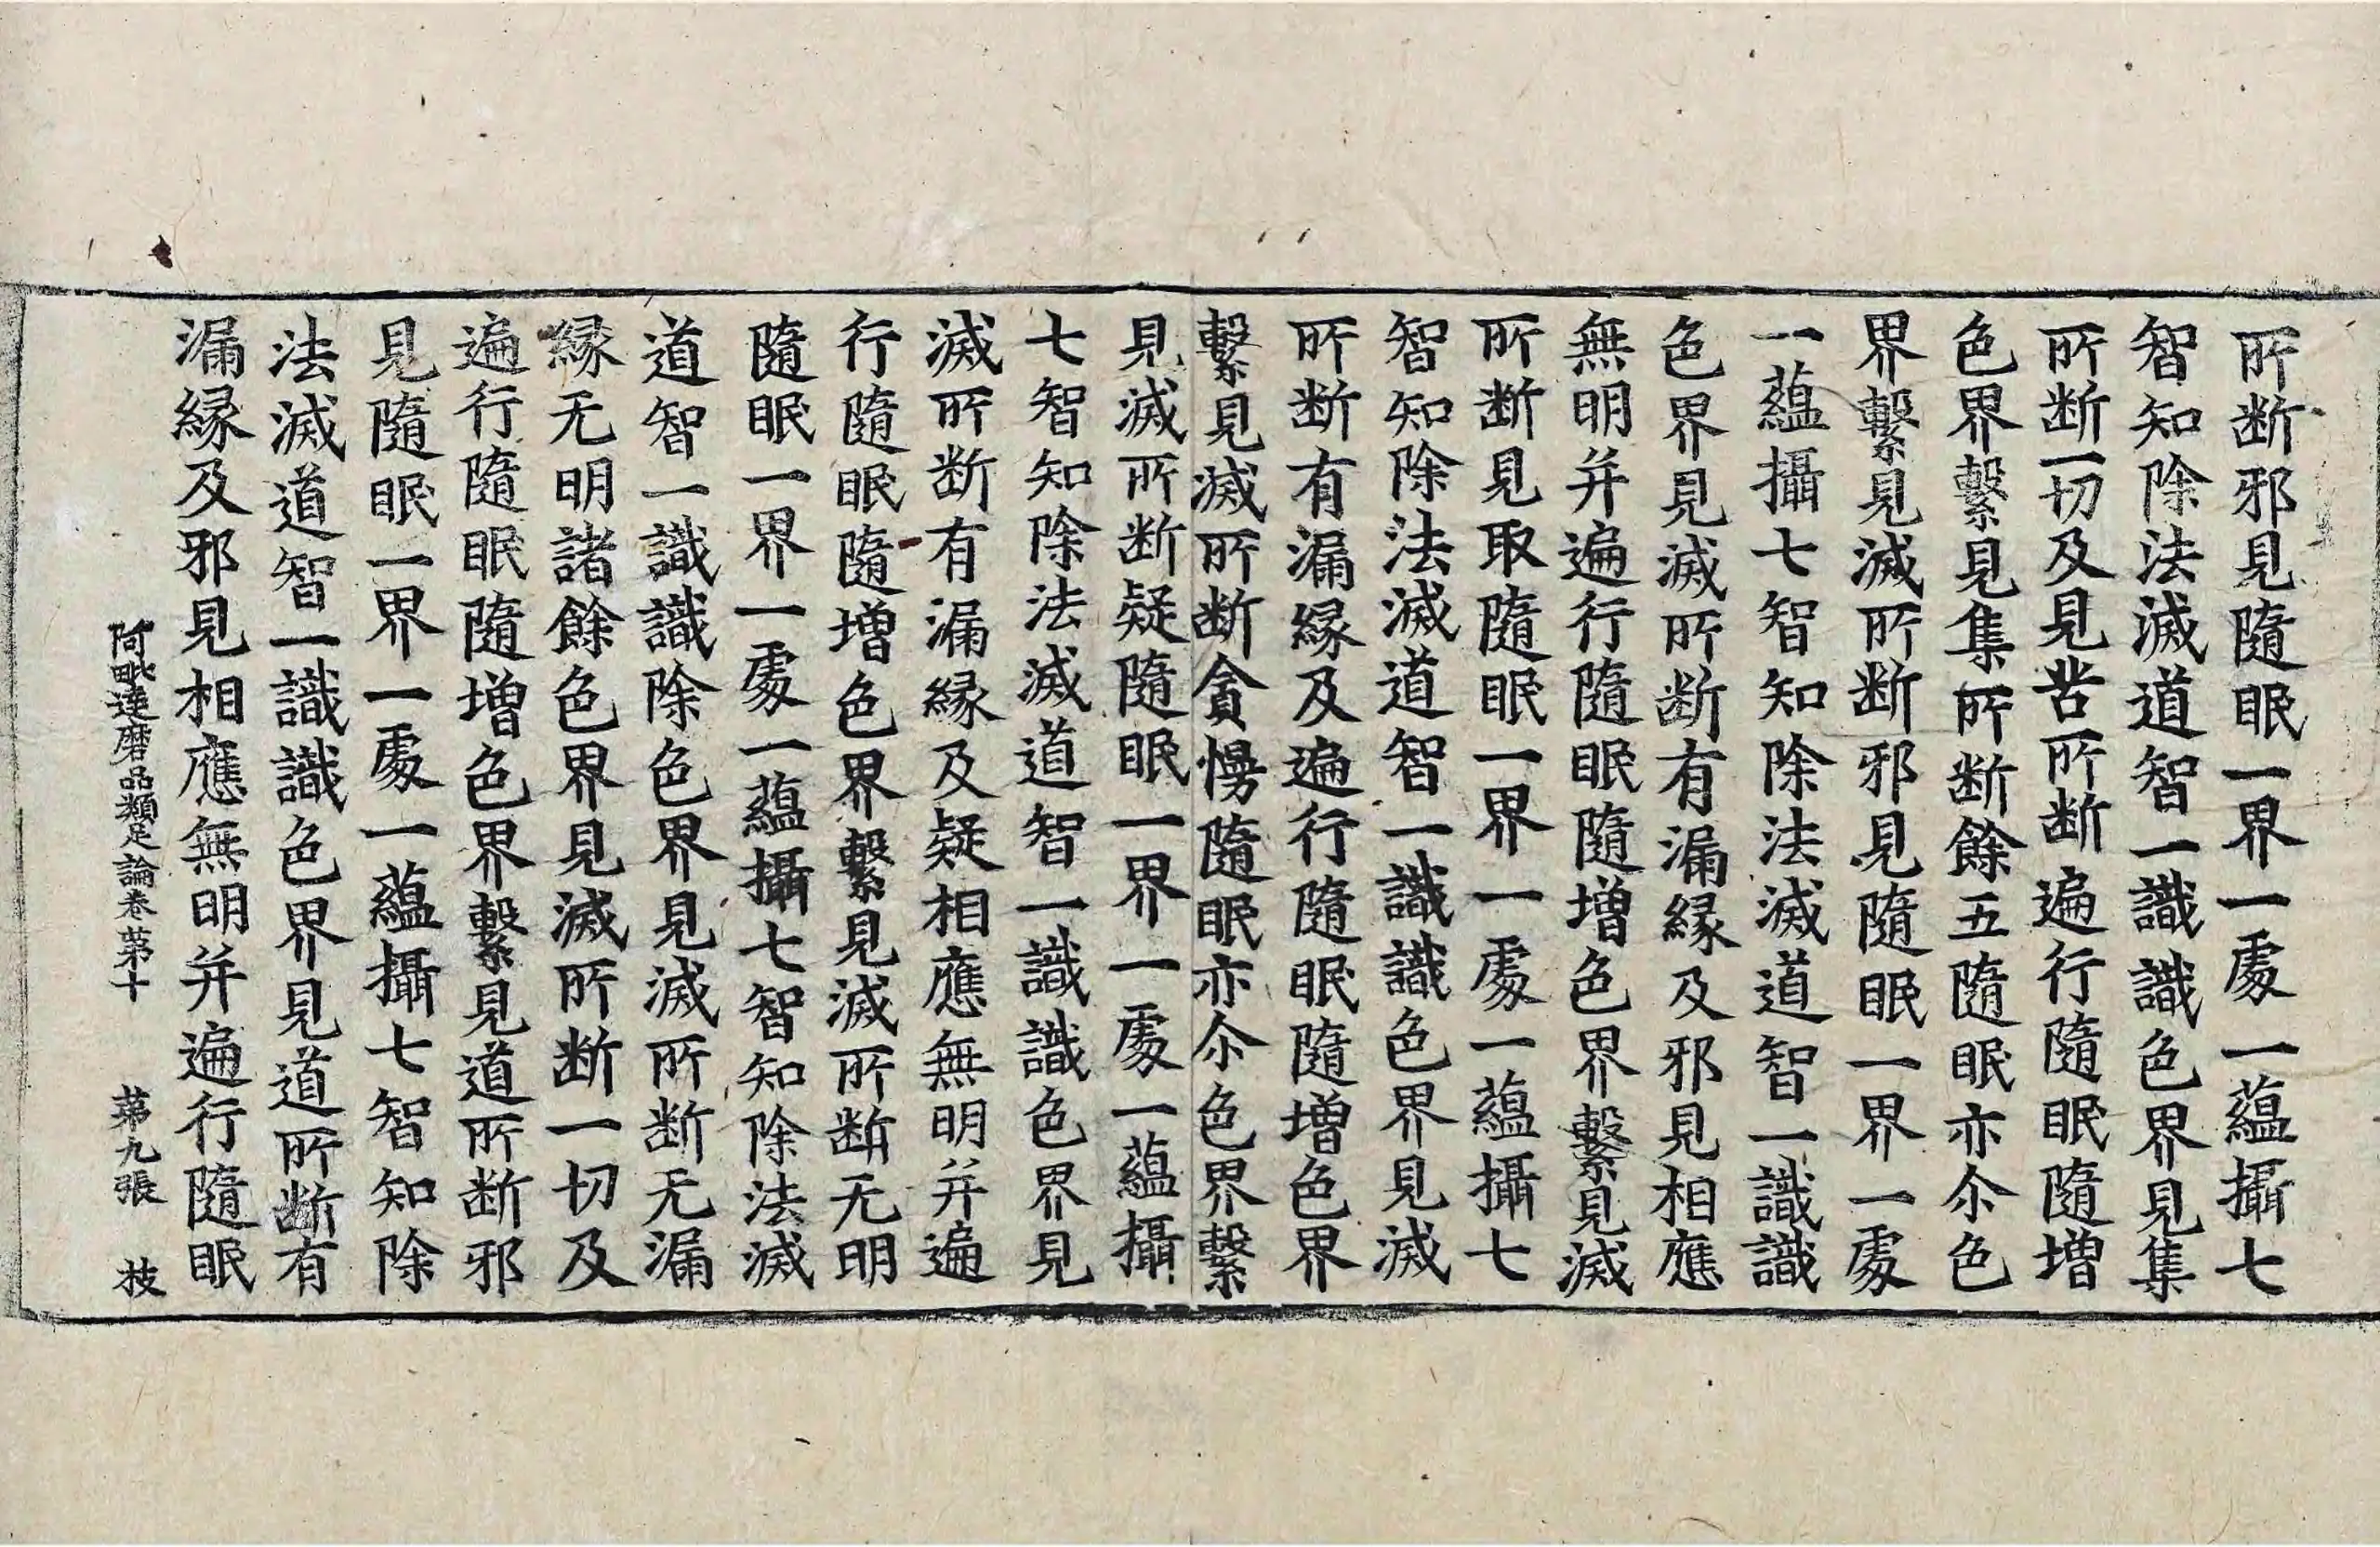 所断邪見隨眠一界一處一蘊攝七
智知除法滅道智一識識色界見集
所断一切及見苦所断遍行隨眠隨增
色界繫見集所断餘五隨眠亦尒色
界繫見滅所断邪見隨眠一界一處
一蘊攝七智知除法滅道智一識識
色界見滅所断有漏縁及邪見相應
無明并遍行隨眠隨增色界繫見滅
所断見取隨眠一界一處一蘊攝七
智知除法滅道智一識識色界見滅
所断有漏縁及遍行隨眠隨增色界
繫見滅所断貪慢隨眠亦尒色界繫
見滅所断疑隨眠一界一處一蘊攝
七智知除法滅道智一識識色界見
滅所断有漏縁及疑相應無明并遍
行隨眠隨增色界繫見滅所断无明
隨眠一界一處一蘊攝七智知除法滅
道智一識識除色界見滅所断无漏
縁无明諸餘色界見滅所断一切及
遍行隨眠隨增色界繫見道所断邪
見隨眠一界一處一蘊攝七智知除
法滅道智一識識色界見道所断有
漏縁及邪見相應無明并遍行隨眠
阿毗達磨品類足論卷苐十 苐九張 技